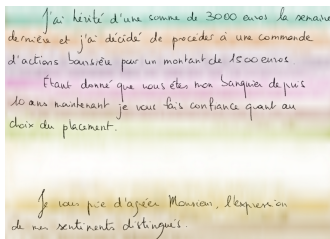 J'ai hérité d'une somme de 3000 euros la semaine
dernière et j'ai décidé de procéder à une commande
d'actions boursière pour un montant de 1500 euros
Étant donné que vous êtes mon banquier depuis
10 ans maintenant je vous fais confiance quant au
choix du placement.
Je vous prie d'agréer Monsieur, l'expression
de mes sentiments distingués.